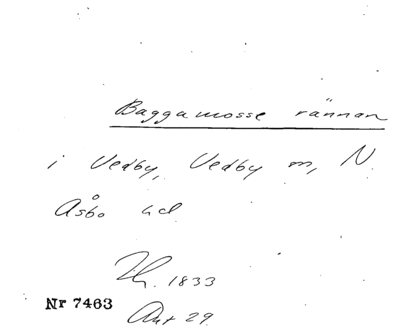 Baggamosse rännan
i Vedby, Vedby sn, N.
Åsbo hd
1833
Nr 7463
Akt 29.